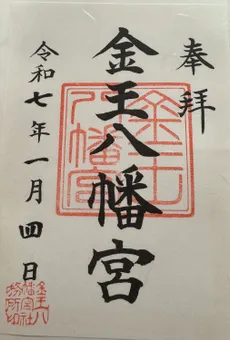 奉拝
金王八幡宮
令和七年一月四日
金王八幡宮
金王八
幡宮社
務所印